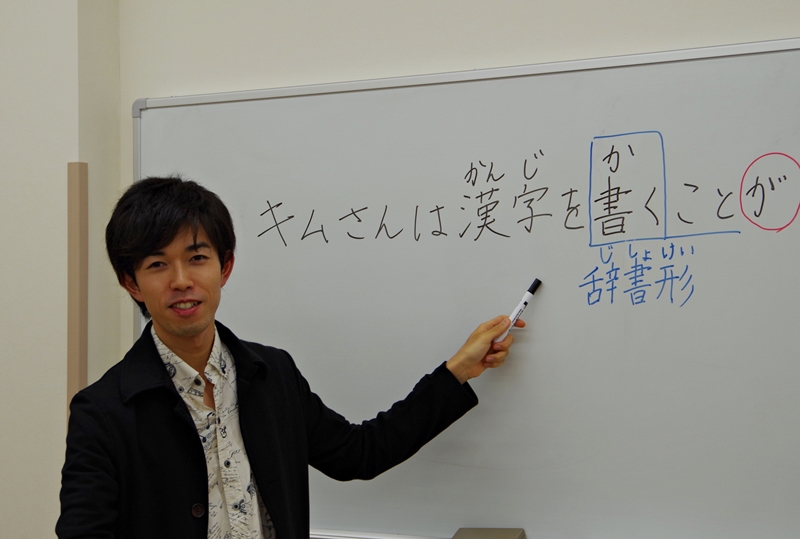 かんじ か
キムさんは漢字を書くことが
じしょけい
辞書形